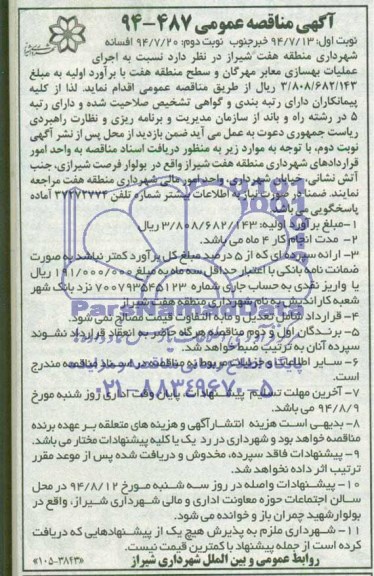 آگهی مناقصه عمومی ۴۸۷-۹۴
نوبت اول: ۹۴/۷/۱۳ خبرجنوب نوبت دوم: ۹۴/۷/۲۰ افسانه
شهرداری منطقه هفت شیراز در نظر دارد نسبت به اجرای
عملیات بهسازی معابر مهرگان و سطح منطقه هفت با برآورد اولیه به مبلغ
۳/۸۰۸/۶۸۲/۱۴۳ ریال از طریق مناقصه عمومی اقدام نماید. لذا از کلیه
پیمانکاران دارای رتبه بندی و گواهی تشخیص صلاحیت شده و دارای رتبه
۵ در رشته راه و باند از سازمان مدیریت و برنامه ریزی و نظارت راهبردی
ریاست جمهوری دعوت به عمل می آید ضمن بازدید از محل پس از نشر آگهی
نوبت دوم، با توجه به موارد زیر به منظور دریافت اسناد مناقصه به واحد امور
قراردادهای شهرداری منطقه هفت شیراز واقع در بولوار فرصت شیرازی، جنب
آتش نشانی، خیابان شهرداری، واحد امور مالی شهرداری منطقه هفت مراجعه
نمایند. ضمنا در صورت نیاز به اطلاعات بیشتر شماره تلفن آماده
پاسخگویی می باشد.
۱-مبلغ برآورد اولیه: ۳/۸۰۸/۶۸۲/۱۴۳ ریال
۲- مدت انجام کار ۴ ماه می باشد.
۳- ارائه سپرده ای که از ۵ درصد مبلغ کل برآورد کمتر نباشد به صورت
ضمانت نامه بانکی با اعتبار حداقل سه ماه به مبلغ ۱۹۱/۰۰۰/۰۰۰ ریال
یا واریز نقدی به حساب جاری شماره ۷۰۰۷۹۳۵۴۵۱۲۳ نزد بانک شهر
شعبه کاراندیش به نام شهرداری منطقه هفت شیراز
۴- قرارداد شامل تعدیل و مابه التفاوت قیمت مصالح نمی شود.
۵- برندگان اول و دوم مناقصه هرگاه حاضر به انعقاد قرارداد نشوند
سپرده آنان به ترتیب ضبط خواهد شد.
۶- سایر اطلاعات و جزئیات مربوط به مناقصه در اسناد مناقصه مندرج
است.
۷- آخرین مهلت تسلیم پیشنهادات، پایان وقت اداری روز شنبه مورخ
۹۴/۸/۹ می باشد.
۸- بدیهی است هزینه انتشار آگهی و هزینه های متعلقه بر عهده برنده
مناقصه خواهد بود و شهرداری در رد یک یا کلیه پیشنهادات مختار می باشد.
۹- پیشنهادات فاقد سپرده، مخدوش و دریافت شده پس از موعد مقرر
ترتیب اثر داده نخواهد شد.
۱۰- پیشنهادات واصله در روز سه شنبه مورخ ۹۴/۸/۱۲ در محل
سالن اجتماعات حوزه معاونت اداری و مالی شهرداری شیراز، واقع در
بولوار شهید چمران باز و خوانده می شود.
۱۱- شهرداری ملزم به پذیرش هیچ یک از پیشنهادهایی که دریافت
کرده است از جمله پیشنهاد با کمترین قیمت نیست.
روابط عمومی و بین الملل شهرداری شیراز «۱۰۵-۳۸۴۳»
ParsNamadData
۰۲۱-۸۸۳۴۹۶۷۰-۵